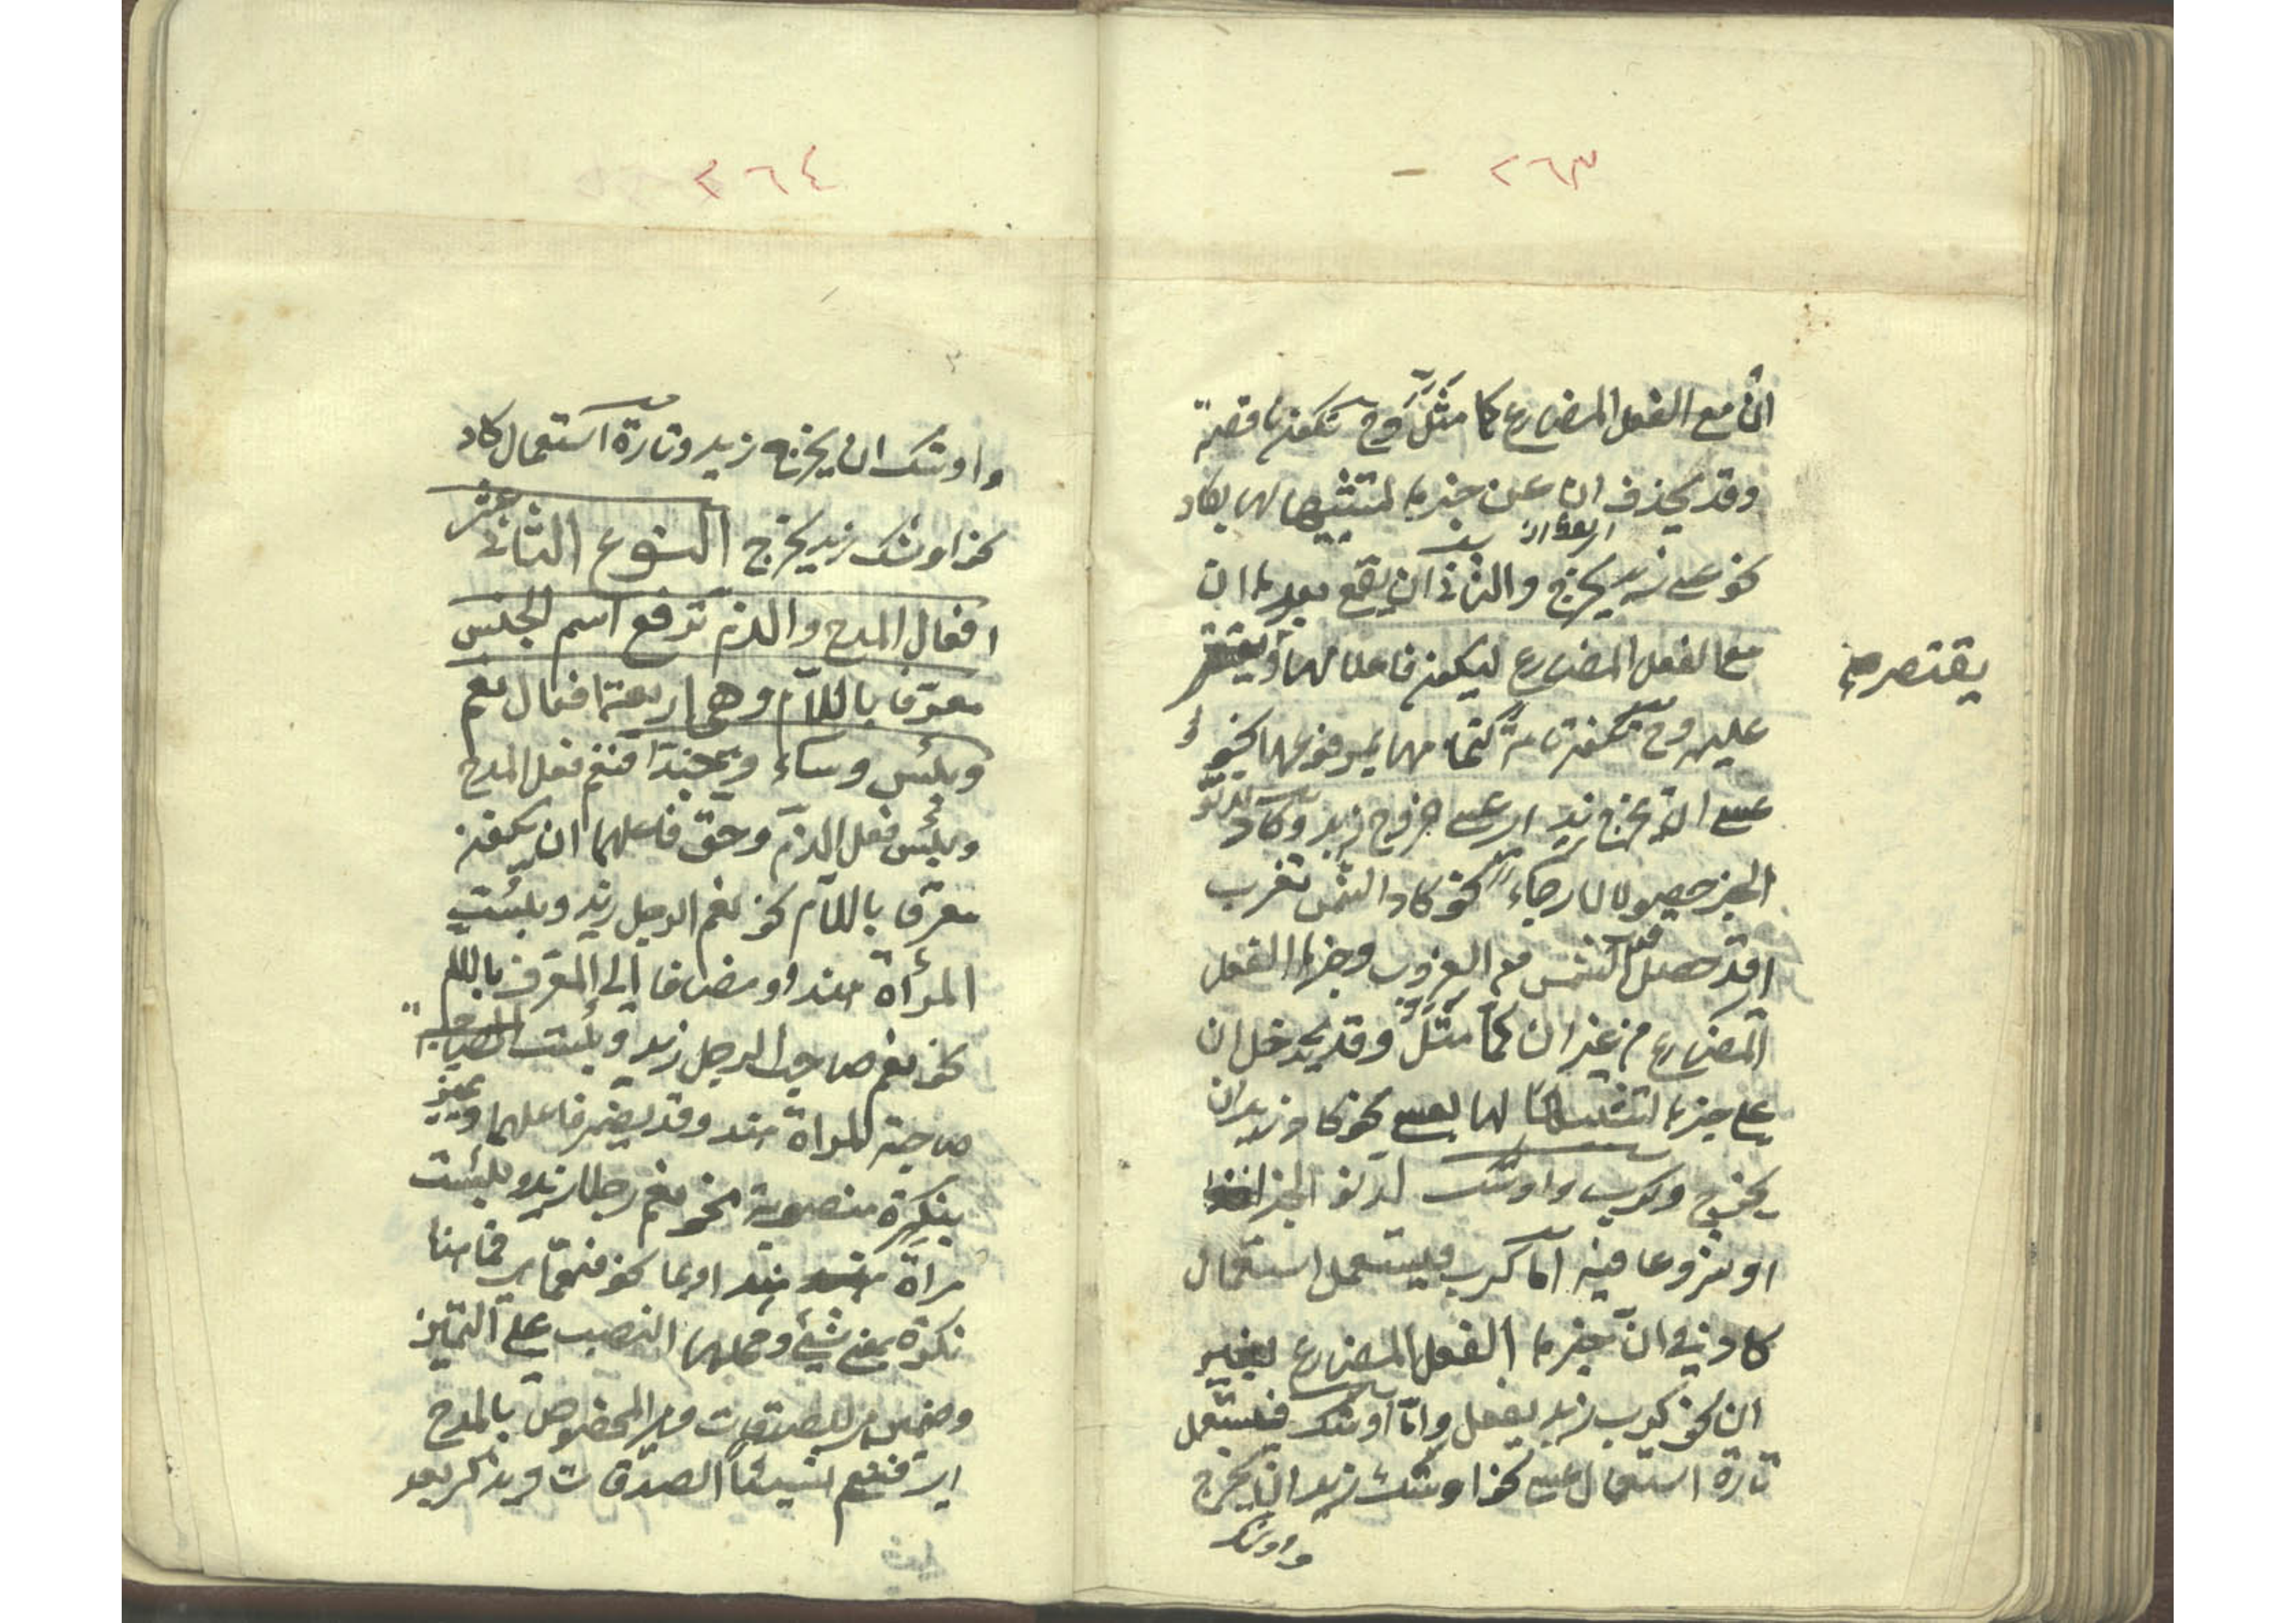 ٢٦٣
ان مع الفعل المضارع كما مثل وح تكون ناقصة
وقد يحذف ان عن خبرها لتشبيهها لها بكاد
نحو عسى زيد يخرج والثاني ان يقع بعدها ان
مع الفعل المضارع ليكون فاعلا لها ويقتصر
يقتصر صح
عليه وح تكون تامة لتمامها بمرفوعها نحو
عسى ان يخرج زيد اى عسى خروج زيد وكاد لدنو
الخبر حصولا لا رجاء نحو كاد الشمس تغرب
اى قد حصل قرب الشمس مع الغروب وخبرها الفعل
المضارع من غير ان كما مثل وقد يدخل ان
على خبرها لتشبيهًا لها بعسى نحو كاد زيد ان
يخرج وكرب واوشك لدنو الخبر اخذا
او شروعا فيه اما كرب فيستعمل استعمال
كاد في ان خبرها الفعل المضارع بغير
ان نحو كرب زيد يفعل واما اوشك فيستعمل
تارة استعمال عسى نحو اوشك زيد ان يخرج
واوشك
٢٦٤
واوشك ان يخرج زيد وتارة استعمال كاد
نحو اوشك زيد يخرج النوع الثانى عشر
افعال المدح والذم ترفع اسم الجنس
معرّفا باللام وهى اربعة افعال نعم
وبئس وساء وحبذا فنعم فعل المدح
وبئس فعل الذم وحق فاعلهما ان يكون
معرفا باللام نحو نعم الرجل زيد وبئست
المرأة هند او مضافا الى المعرف باللام
نحو نعم صاحب الرجل زيد وبئست
صاحبة المرأة هند وقد يضمر فاعلهما ويميز
بنكرة منصوبة نحو نعم رجلا زيد وبئست
مرأة هند او بما نحو فنعمّا هى فما هنا
نكرة بمعنى شيئ ومحلها النصب على التميز
وضمير هى للصدقات وهو المخصوص بالمدح
اى فنعم شيئًا الصدقات ويذكر بعد